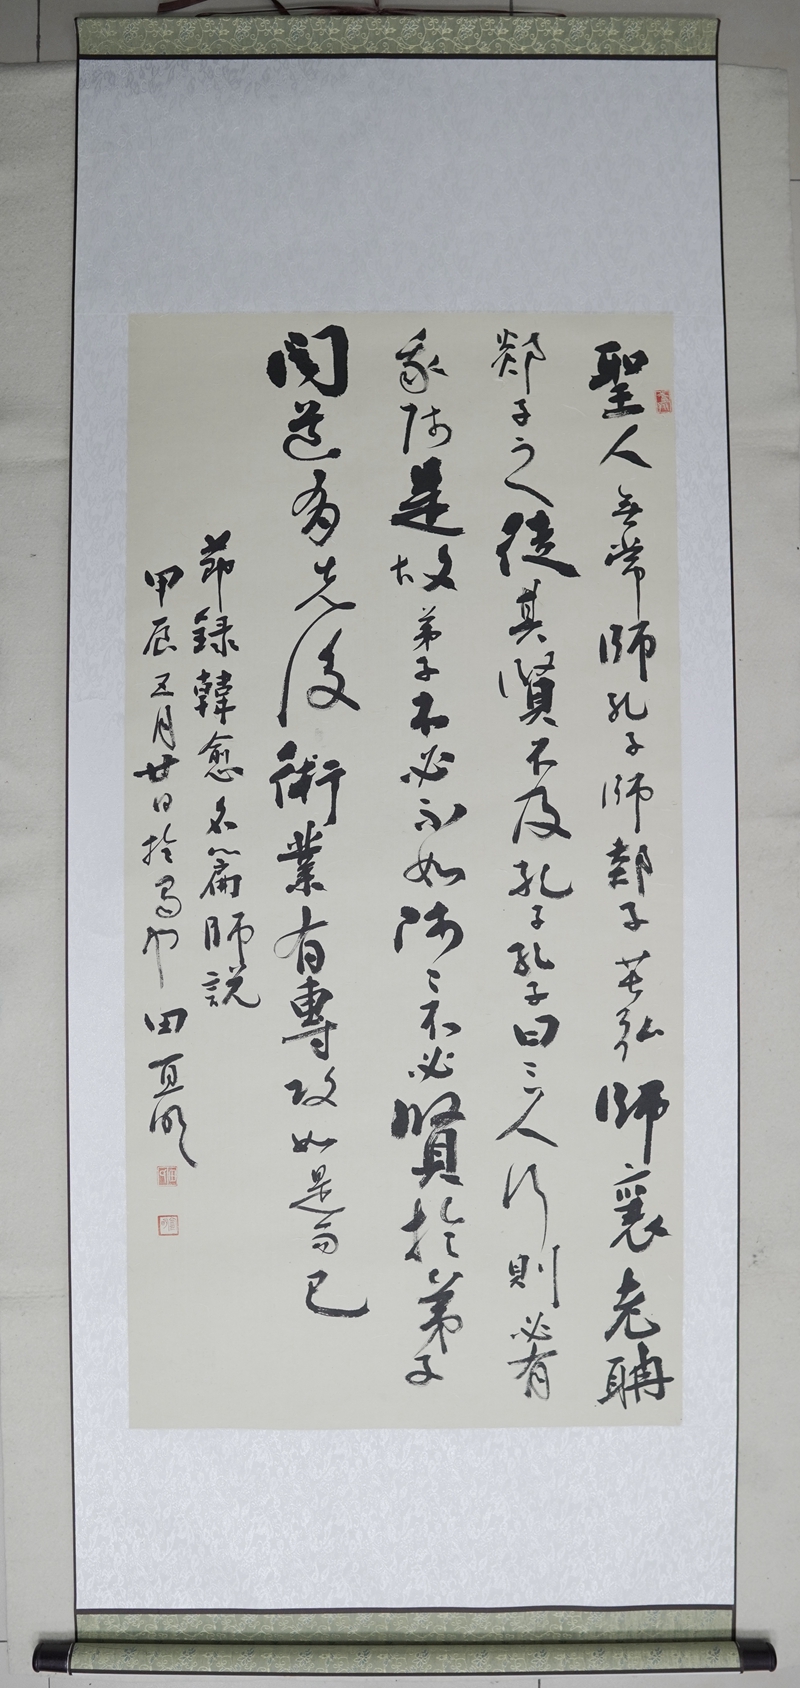 聖人無常師孔子師郯子萇弘師襄老聃
郯子之徒其賢不及孔子孔子曰三人行則必有
我師是故弟子不必不如師〻不必賢於弟子
聞道有先後術業有專攻如是而已
節録韓愈名篇師説
甲辰五月廿日於蜀中田直